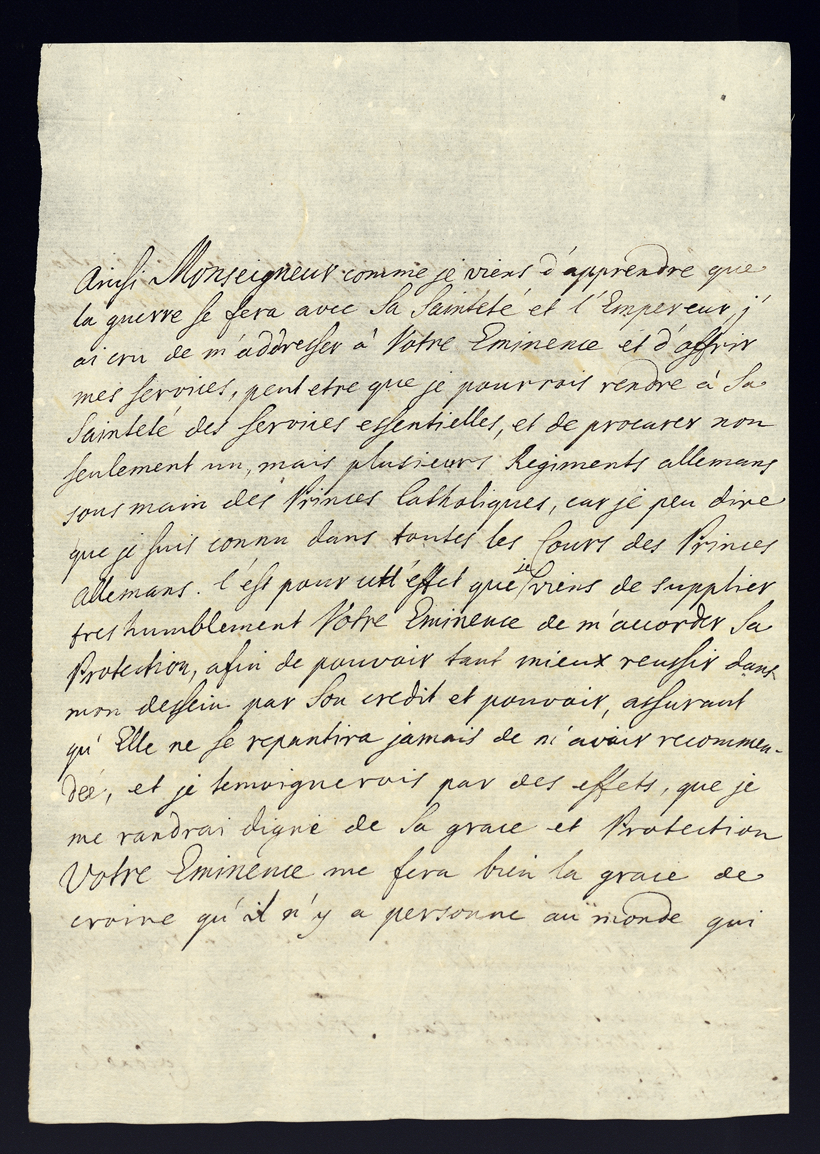 Ainsi Monseigneur comme je viens d'apprendre que
la guerre se fera avec Sa Sainteté et l'Empereur, j'
ai cru de m'addresser à Votre Eminence et d'offrir
mes services, peut etre que je pourrois rendre à Sa
Sainteté des services essentielles, et de procurer non
seulement un, mais plusieurs Regiments allemans
sous main des Princes Catholiques, car je peu dire
que je suis connu dans toutes les Cours des Princes
Allemans. C'est pour cett'effet que je viens de supplier
tres humblement Votre Eminence de m'accorder Sa
Protection, afin de pouvoir tant mieux reussir dans
mon dessein par Son credit et pouvoir, assurant
qu' Elle ne se repantira jamais de m'avoir recommen-
deé, et je temoignerois par des effets, que je
me randrai digne de Sa grace et Protection
Votre Eminence me fera bien la grace de
croire qu'il n'y a personne au monde qui